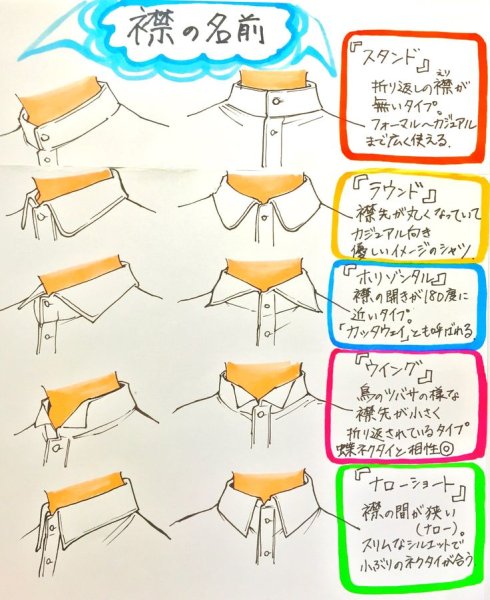 襟の名前
『スタンド』
折り返しの襟が
えり
無いタイプ。
フォーマル〜カジュアル
まで広く使える.
『ラウンド』
襟先が丸くなっていて
カジュアル向き
優しいイメージのシャツ.
『ホリゾンタル』
襟の開きが180度に
近いタイプ。
「カッタウェイ」とも呼ばれる.
『ウイング』
鳥のツバサの様な
襟先が小さく
折り返されているタイプ
蝶ネクタイと相性◎
『ナローショート』
襟の間が狭い
(ナロー)。
スリムなシルエットで
小ぶりのネクタイが合う